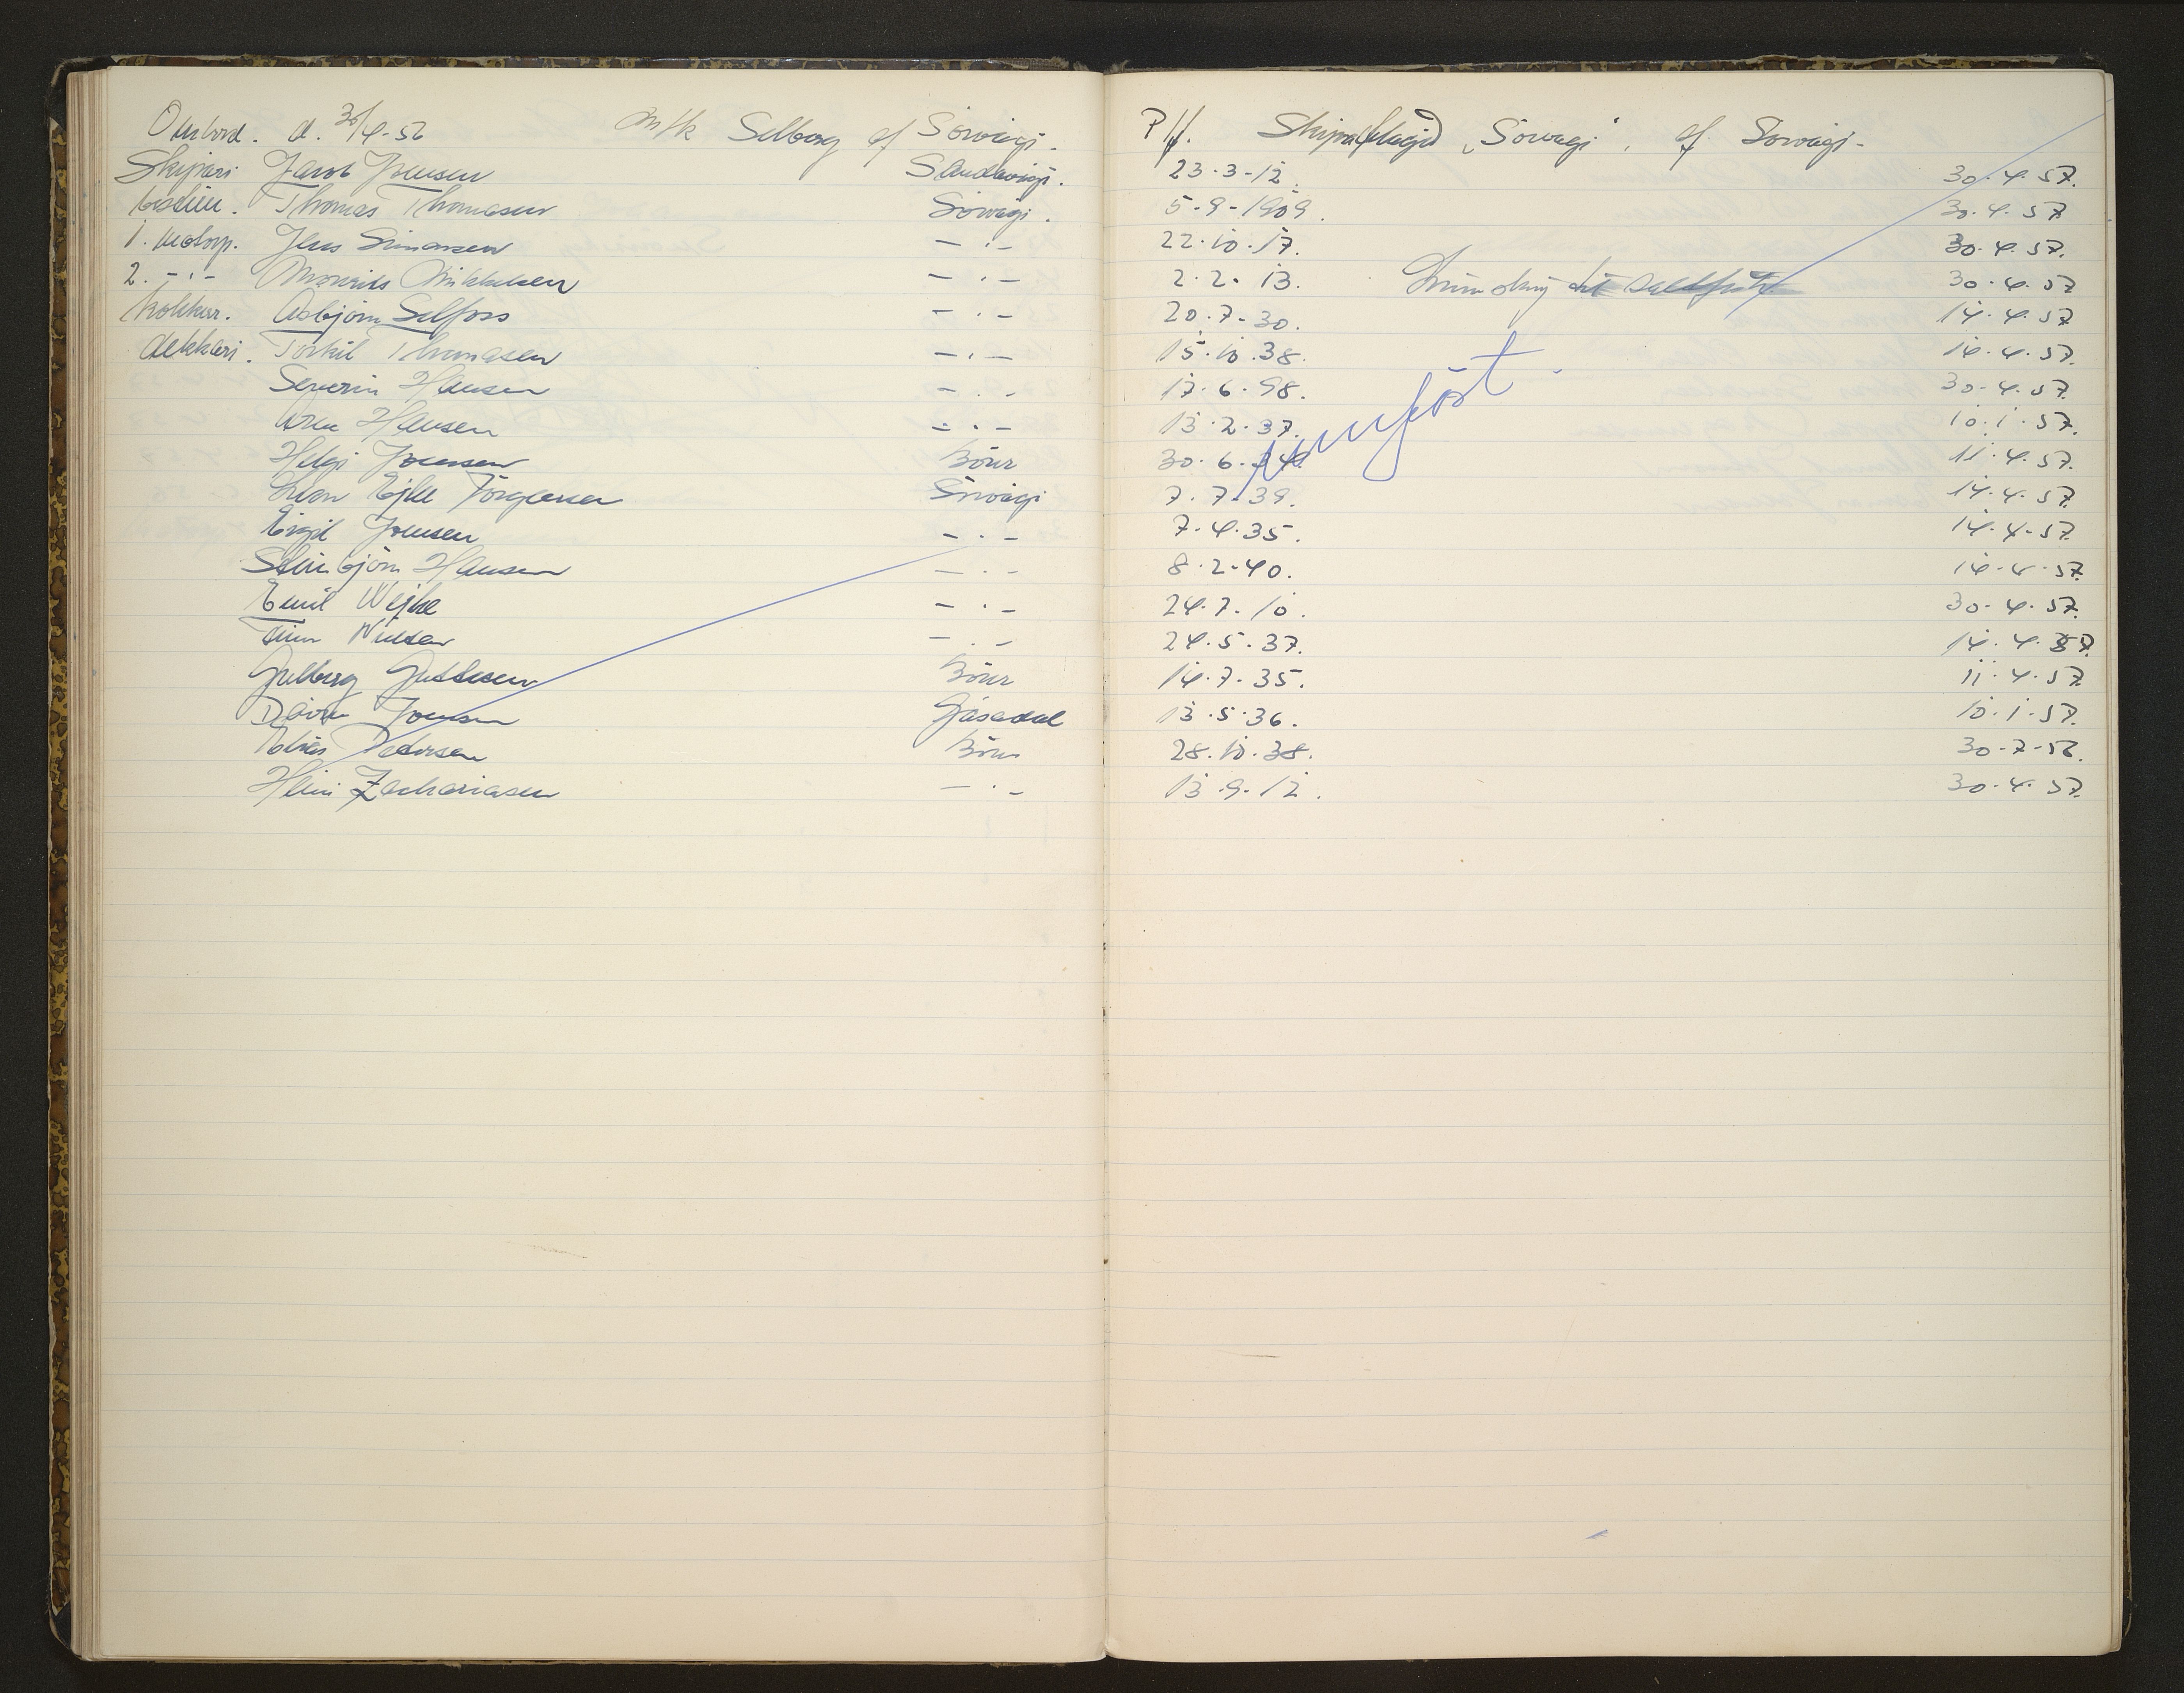 d. 30/4-56 M/k Selborg af Sörvági. P/f. Skipafelagið "Sörvagi", af Sörvági-
Skipari Jacob Joensen Sandavági. 23.3-12. 30.4.57.
bestim. Thomas Thomasen Sörvági. 5-9-1909. 30.4.57
1. motorp. Jens Simonsen -.- 22.10.17. 30.4.57.
2. -.- Mourits Mikkelsen -.- 2.2-13. 30.4.57
kokkur. Asbjörn Selfoss -.- 20.7-30. 14.4.57
dekkari. Torkil Thomasen -.- 15.10.38. 14.4.57.
Severin Hansen -.- 17.6.98. 30.4.57
Hansen -.- 13.2.37. 10.1.57.
Helgi Joensen Bönr 30.6. 11.4.57.
Ejke Sörvági 7.7-39. 14.4.57
Eigil Joensen -.- 7.4.35. 14.4-57
Steinbjörn Hansen -.- 8.2-40. 57
Emil Wejhe -.- 24.7.10. 30.4.57.
Finn Nielsen -.- 24.5.37. 14.4.57.
Gulborg Gullesen Bönr 14.7.35. 11.4.57
Joensen Gásadal 13.5.36. 10.1.57.
Elias Pedersen Bönr 28.10.38. 30-7-56.
Heini Zachariasen -.- 13.9.12. 30.4.57.